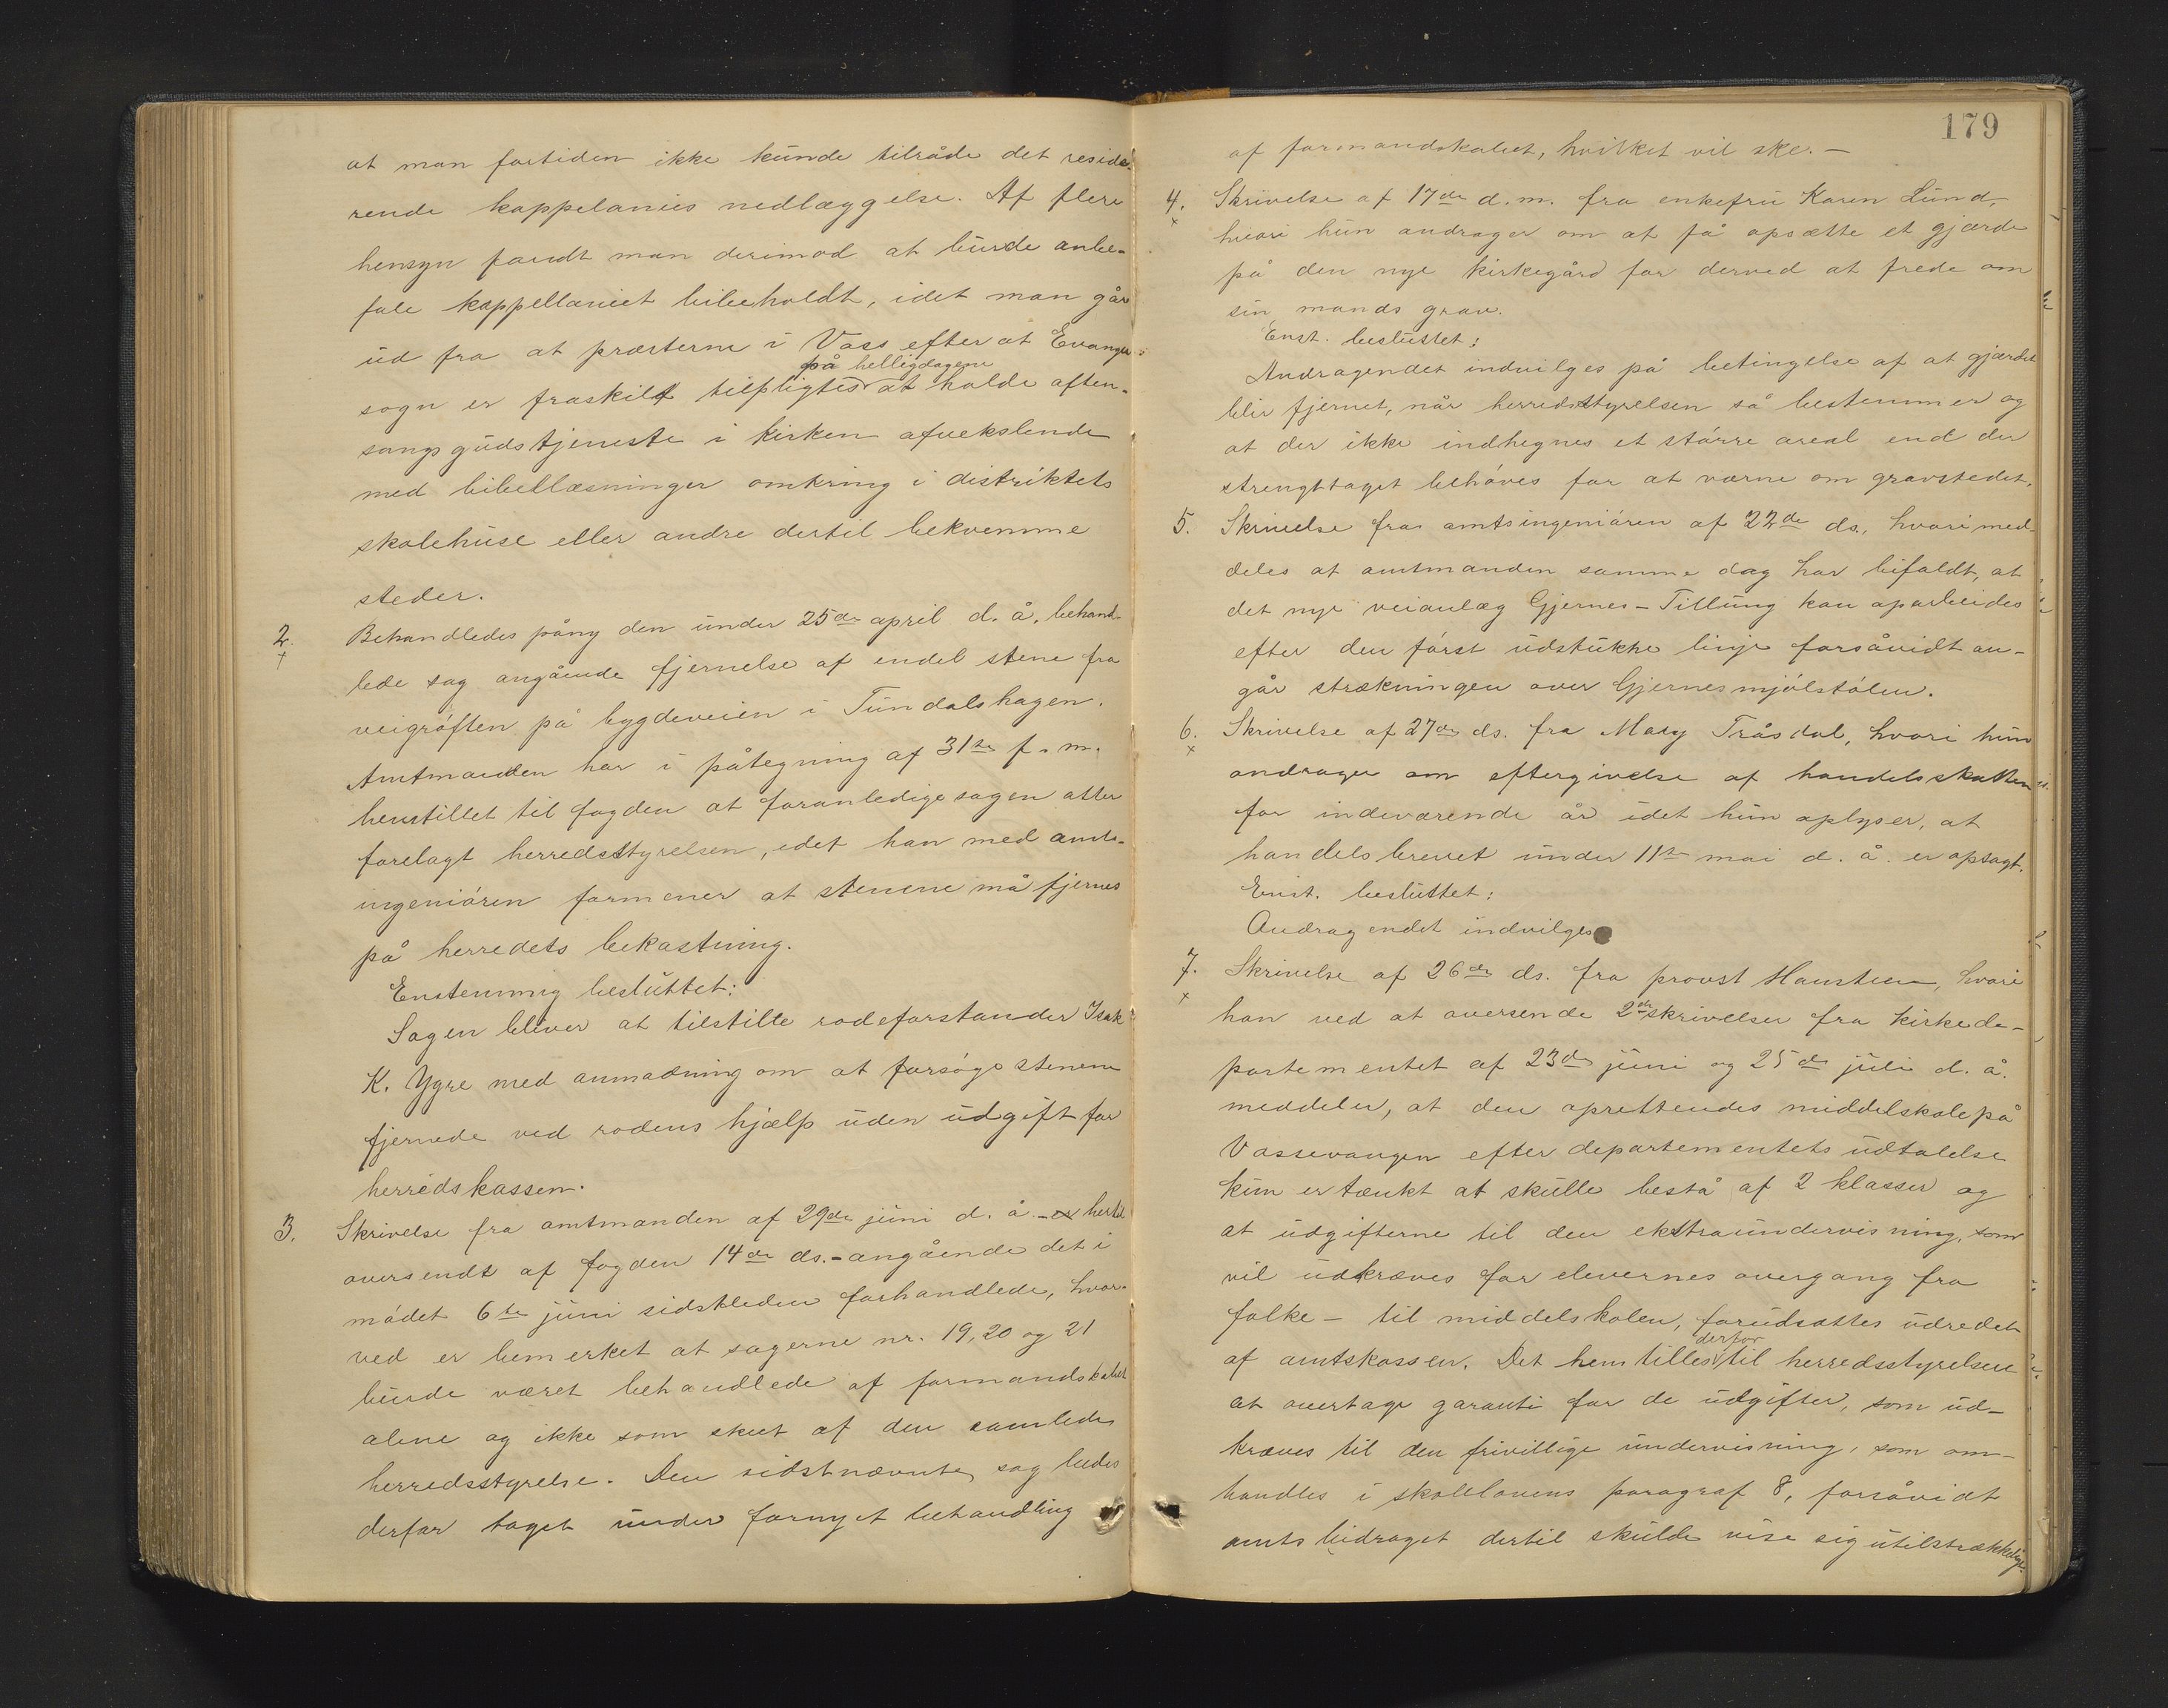 at man fortiden ikke kunde tilråde det reside-
rende kappelanies nedlæggelse. Af flere
hensyn fandt man derimod at burde anbe-
fale kappellaniet bibeholdt, idet man går
ud fra at præsterne i Voss efter at Evanger
på helligdagene
sogn er fraskilt tilpligtes at holde aften-
sangsgudstjeneste i kirken afvekslende
med bibellæsninger omkring i distriktets
skolehuse eller andre dertil bekvemme
steder.
2. Behandledes påny den under 25de april d. å. behand-
lede sag angående fjernelse af endel stene fra
veigrøften på bygdeveien i Tundalshagen.
Amtmanden har i påtegning af 31te f. m.
henstillet til fogden at foranledige sagen atter
forelagt herredsstyrelsen, idet han med amts-
ingeniøren formener at stenene må fjernes
på herredets bekostning.
Enstemmig besluttet:
Sagen bliver at tilstille rodeforstander Isak
K. Ygre med anmodning om at forsøge stenene
fjernede ved rodens hjælp uden udgift for
herredskassen.
3. Skrivelse fra amtmanden af 29de juni d. å. - hertil
oversendt af fogden 14de ds. - angående det i
mødet 6te juni sidstleden forhandlede, hvor-
ved er bemerket at sagerne nr. 19, 20 og 21
burde været behandlede af formandskabet
alene og ikke som skeet af den samlede
herredsstyrelse. Den sidstnævnte sag bedes
derfor taget under fornyet behandling
179
af formandskabet, hvilket vil ske. -
4. Skrivelse af 17de d. m. fra enkefru Karen Lund,
hvori hun andrager om at få opsætte et gjærde
på den nye kirkegård for derved at frede om
sin mands grav.
Enst. besluttet:
Andragendet indvilges på betingelse af at gjærdet
blir fjernet, når herredsstyrelsen så bestemmer og
at der ikke indhegnes et større areal end der
strengt taget behøves for at værne om gravstedet.
5. Skrivelse fra amtsingeniøren af 22de ds., hvori med-
deles at amtmanden samme dag har bifaldt, at
det nye veianlæg Gjernes - Tillung kan oparbeides
efter den først udstukke linje forsåvidt an-
går strækningen over Gjernesmjølstølen.
6. Skrivelse af 27de ds. fra Mary Tråsdal, hvori hun
andrager om eftergivelse af handelsskatten
for indeværende år idet hun oplyser, at
handelsbrevet under 11te mai d. å. er opsagt.
Enst. besluttet:
Andragendet indvilges
7. Skrivelse af 26de ds. fra provst Hansteen, hvori
han ved at oversende 2de skrivelser fra kirkede-
partementet af 23de juni og 25de juli d. å.
meddeler, at den oprettendes middelskole på
Vossevangen efter departementets udtalelse
kun er tænkt at skulle bestå af 2 klasser og
at udgifterne til den ekstraundervisning, som
vil udkræves for elevernes overgang fra
folke- til middelskolen, forudsættes udredet
derfor
af amtskassen. Det henstilles til herredsstyrelsen
at overtage garanti for de udgifter, som ud-
kræves til den frivillige undervisning, som om-
handles i skolelovens paragraf 8, forsåvidt
amtsbidraget dertil skulde vise sig utilstrækkelige